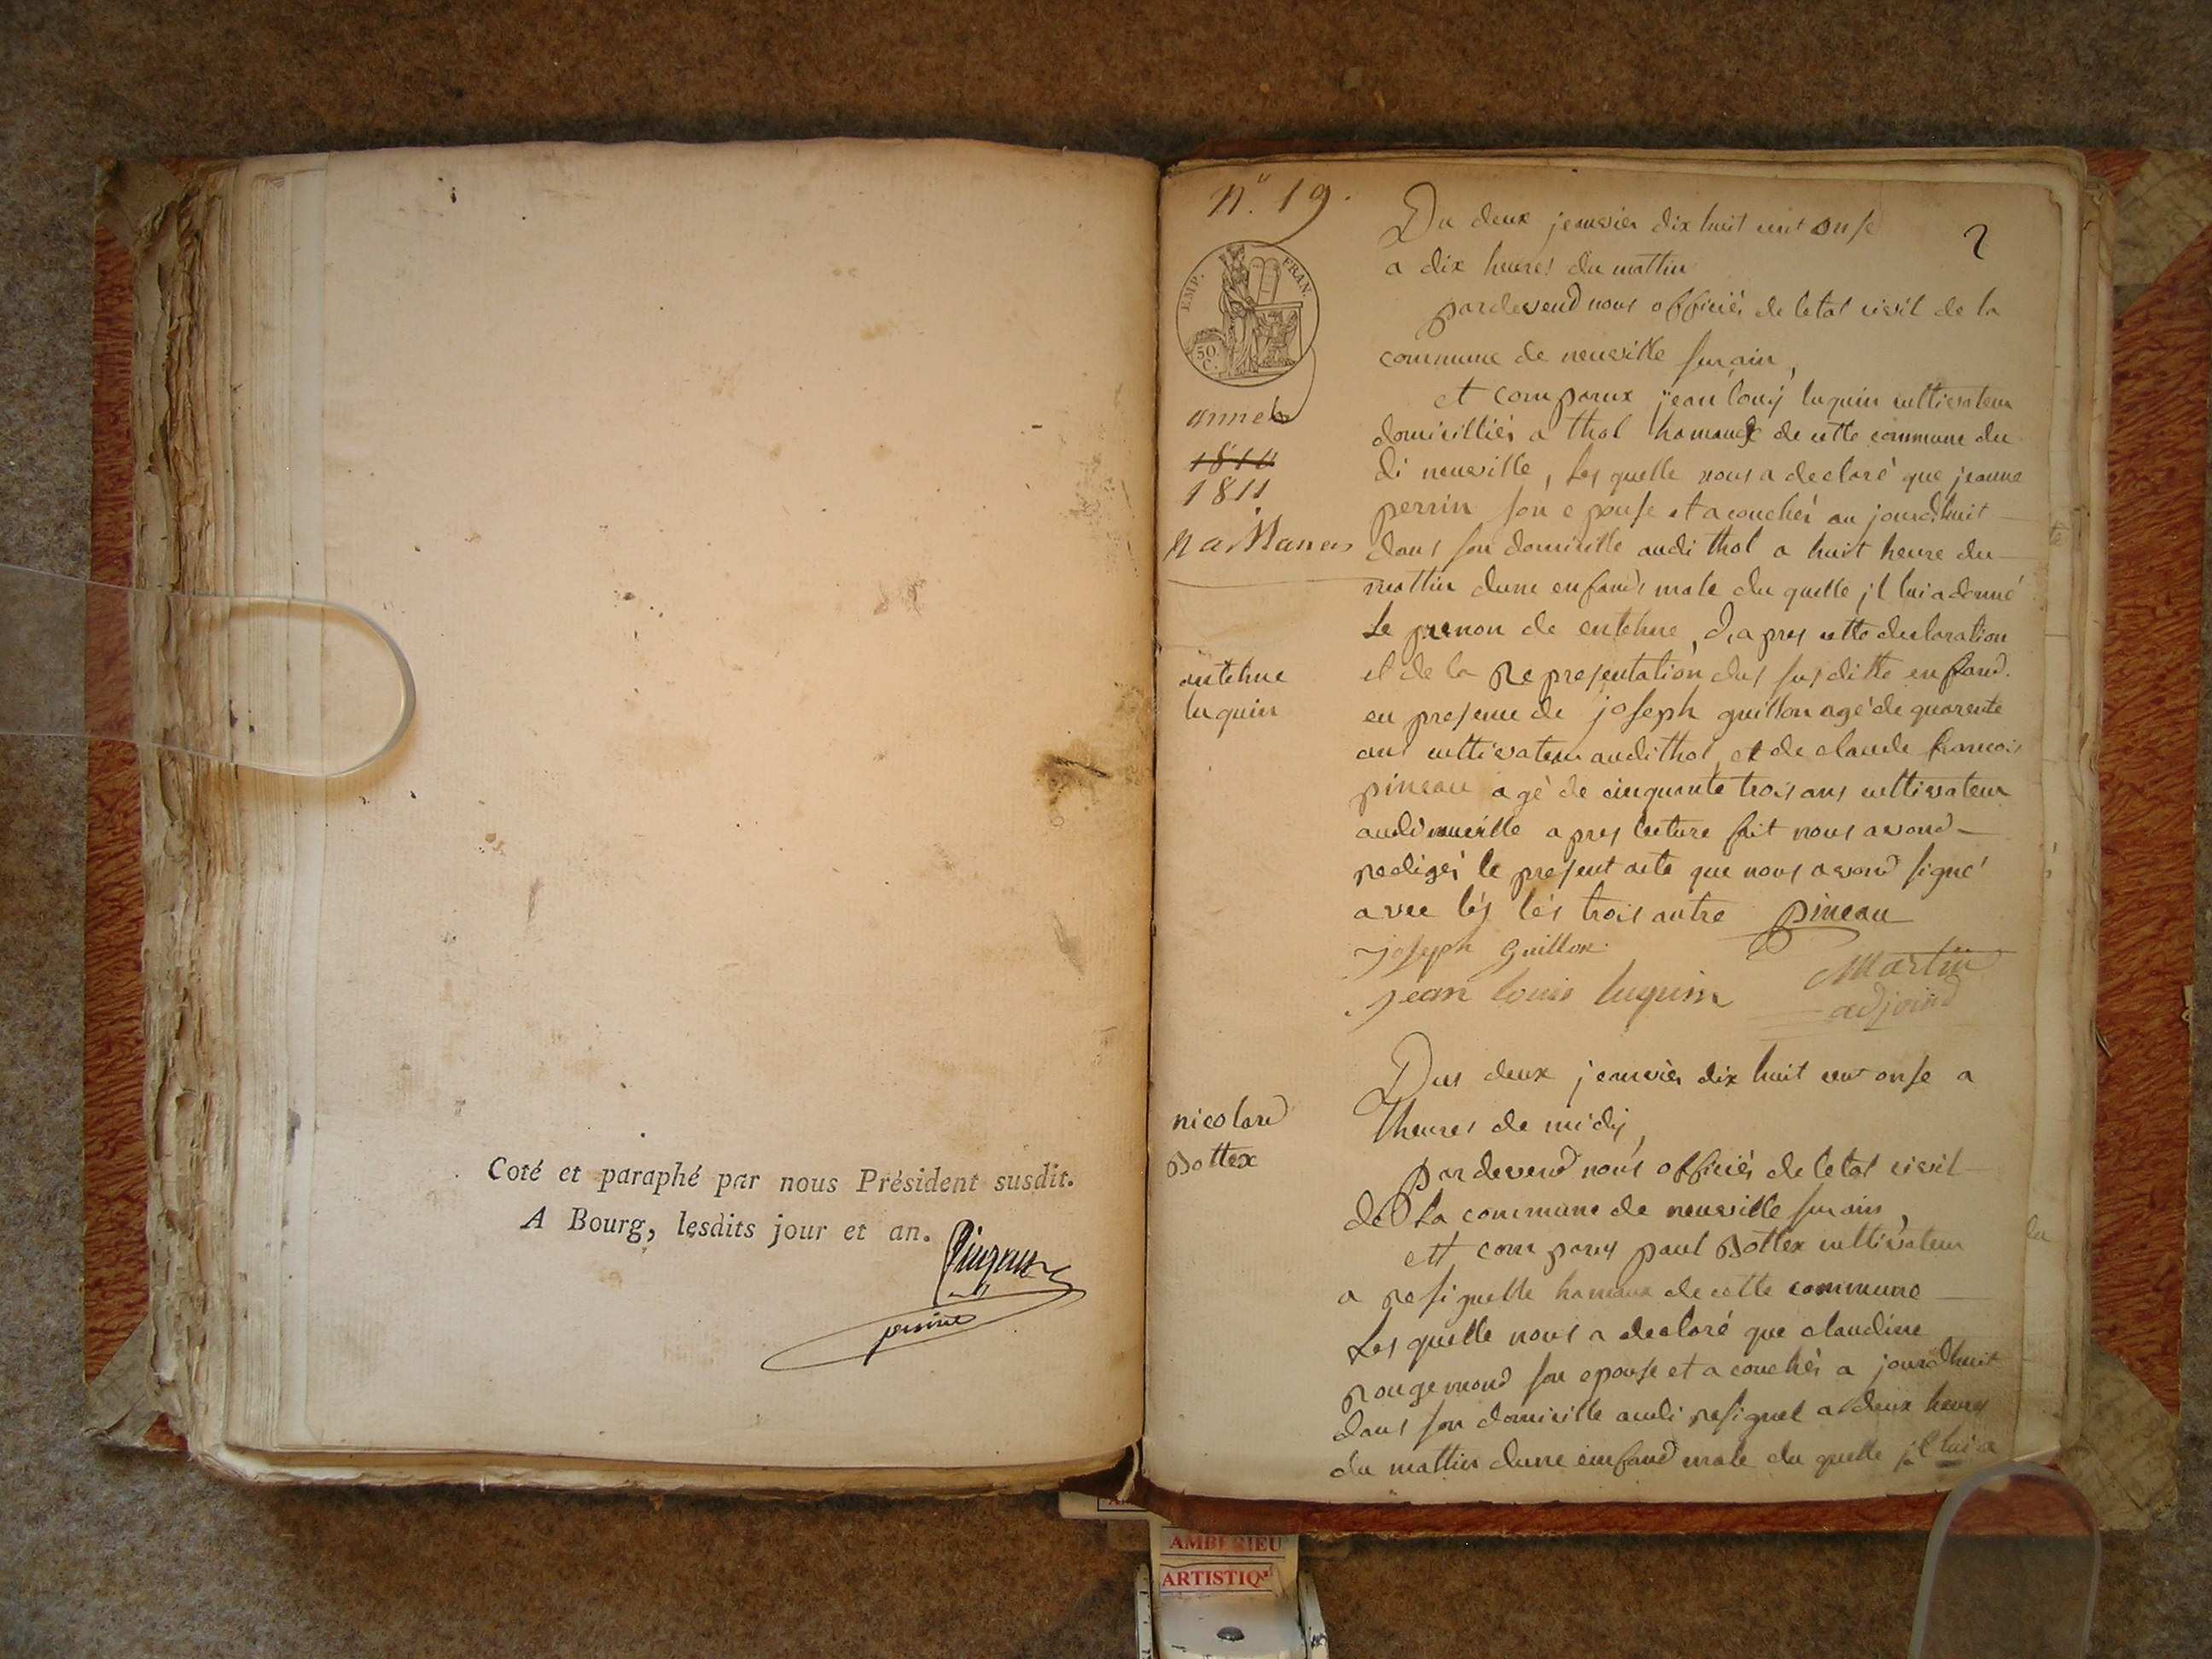 Coté et paraphé par nous Président susdit.
A Bourg, lesdits jour et an.
n.º 19.
2
EMP. FRAN.
50 C.
annee
1810
1811
naissances
Du deux jenvier dix huit cent onse
a dix heures du mattin
pardevend nous officiér de letat civil de la
commune de neuville sur ain,
et comparux jean louis luquin cultivateur
domicilliér a thol hamaux de cette commune du
di neuville, les quelle nous a declaré que jeanne
perrin son epouse et acouchér au jourdhuit
dans son domicille audi thol a huit heure du
mattin dune enfand male du quelle il lui a donné
le prenon de entehne, d, apres cette declaration
et de la Representation dus susditte enfand.
en presence de joseph guillon agé de quarente
ans cultivateur audi thol, et de claude francois
pineau agé de cinquante trois ans cultivateur
audi neuville apres lecture fait nous avond
redigér le present acte que nous avond signé
avec lés lés trois autre pineau
joseph Guillon
Martin
jean louis luquin
adjoind
antehne
luquin
nicolard
Bottex
Dus deux jenviér dix huit cent onse a
lheures de midy,
pardevend nous officiér de letat civil
de la commune de neuville sur ain,
ett comparus paul Bottex cultivateur
a resignelle hamaux de cette commune
Les quelle nous a declaré que claudine
rougemond son epouse et acouchér a jourdhuit
dans son domicille audi resignel a deux heures
du mattin dune eenfand male du quelle il lui a
AMBERIEU
ARTISTIQ